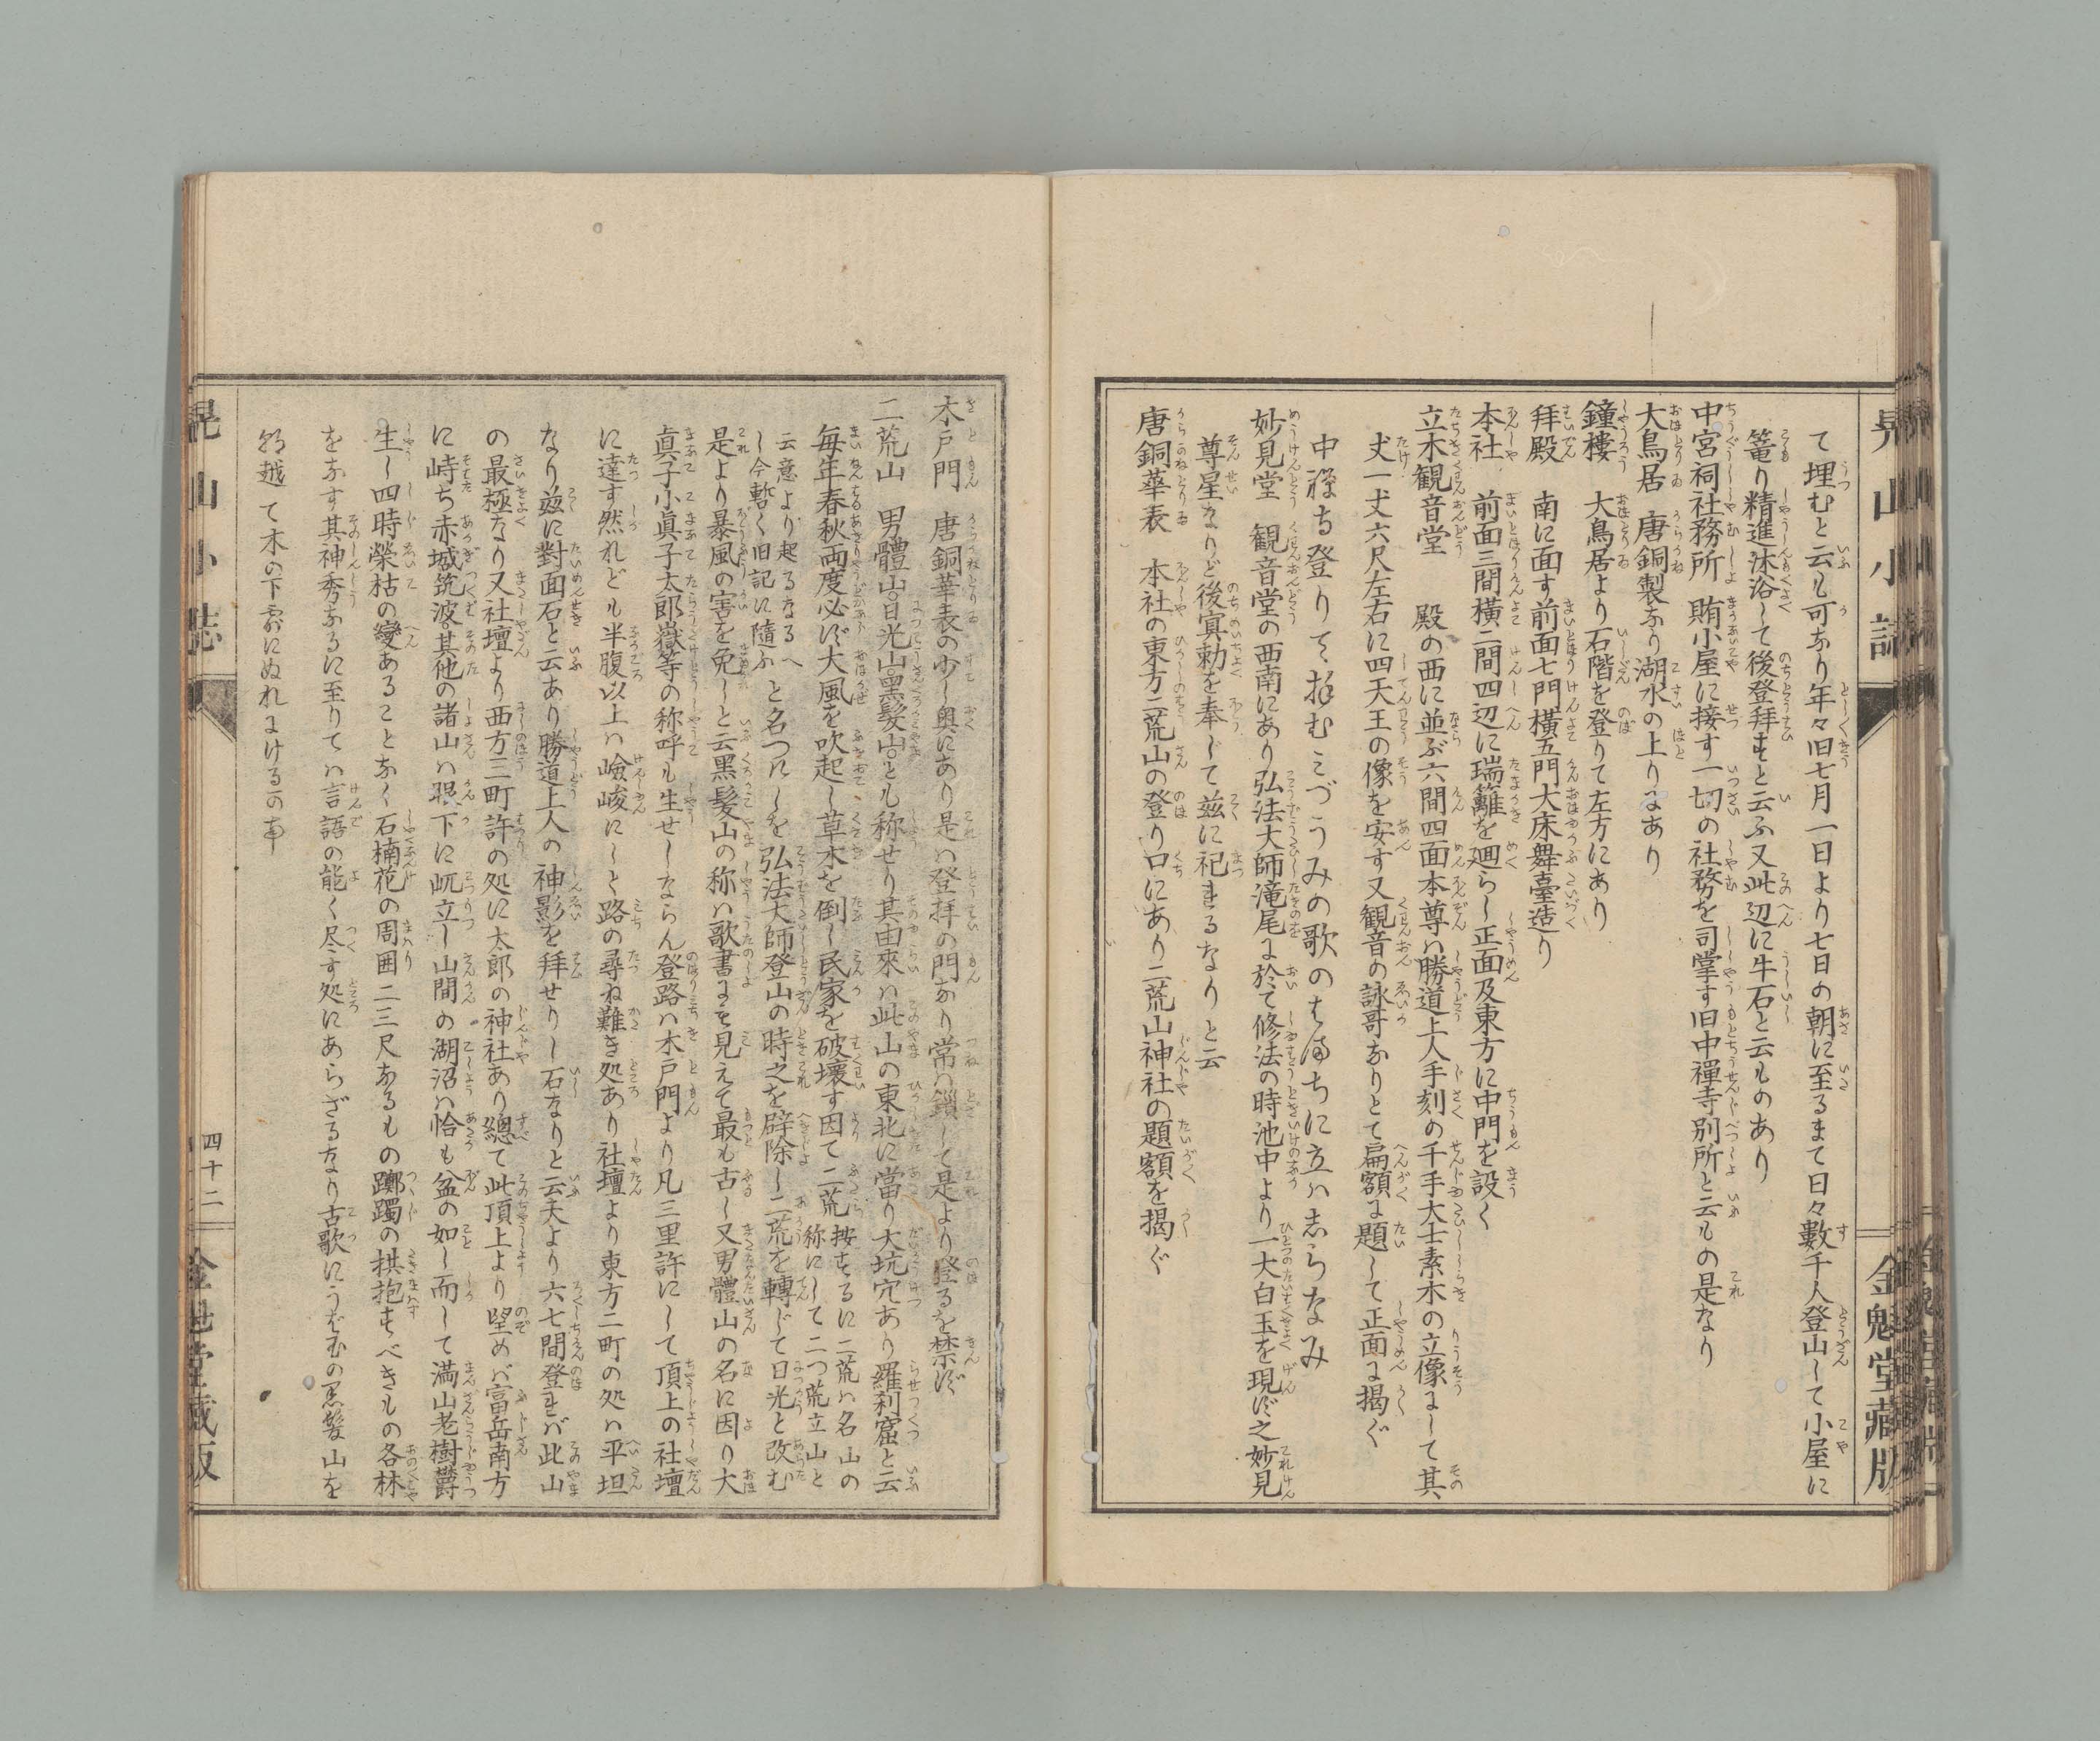 晃山小誌
金魁堂藏版
て埋むと云も可なり年々旧七月一日より七日の朝に至るまて日々數千人登山して小屋に
篭り精進沐浴して後登拜すと云ふ又此辺に牛石と云ものあり
中宮祠社務所 賄小屋に接す一切の社務を司掌す旧中禪寺別所と云もの是なり
大鳥居 唐銅製なり湖水の上りにあり
鐘樓 大鳥居より石階を登りて左方にあり
拜殿 南に面す前面七門橫五門大床舞臺造り
本社 前面三間橫二間四辺に瑞籬を廻らし正面及東方に中門を設く
立木観音堂 殿の西に並ぶ六間四面本尊は勝道上人手刻の千手大士素木の立像にして其
丈一丈六尺左右に四天王の像を安す又観音の詠哥なりとて扁額に題して正面に揭ぐ
中禅寺登りて拝むみづうみの歌のはまちに立はしらなみ
妙見堂 観音堂の西南にあり弘法大師滝尾に於て修法の時池中より一大白玉を現ず之妙見
尊星なりと後冥勅を奉じて茲に祀れるなりと云
唐銅華表 本社の東方二荒山の登り口にあり二荒山神社の題額を揭ぐ
木戸門 唐銅華表の少し奥にあり是は登拜の門なり常は鎖して是より登るを禁ず
二荒山 男體山日光山黑髮山とも称せり其由來は此山の東北に當り大坑穴あり羅刹窟と云
毎年春秋両度必ず大風を吹起し草木を倒し民家を破壞す因て二荒 按するに二荒は名山の
称にして二つ荒立山と
云意より起るなるへ
し今暫く旧記に隨ふ と名つけしを弘法大師登山の時之を辟除し二荒を轉じて日光と改む
是より暴風の害を免しと云黑髪山の称は歌書にも見えて最も古し又男體山の名に因り大
眞子小眞子太郎嶽等の称呼も生せしならん登路は木戸門より凡三里許にして頂上の社壇
に達す然れども半腹以上は嶮峻にして路の尋ね難き処あり社壇より東方二町の処は平坦
なり茲に對面石と云あり勝道上人の神影を拜せりし石なりと云夫より六七間登れば此山
の最極なり又社壇より西方三町許の処に太郎の神社あり總て此頂上より望めば富岳南方
に峙ち赤城筑波其他の諸山は眼下に屹立し山間の湖沼は恰も盆の如し而して満山老樹欝
生し四時榮枯の變あることなく石楠花の周囲二三尺なるもの躑躅の拱抱すべきもの各林
をなす其神秀なるに至りては言語の能く尽す処にあらざるなり古歌にうばたまの黑髮山を
朝越て木の下露にぬれにけるかも
晃山小誌
四十二
金魁堂藏版